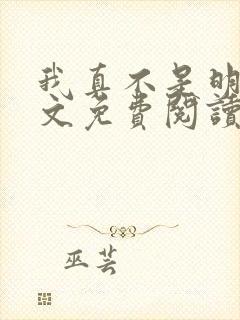 我真不是明
文免费阅读
巫芸